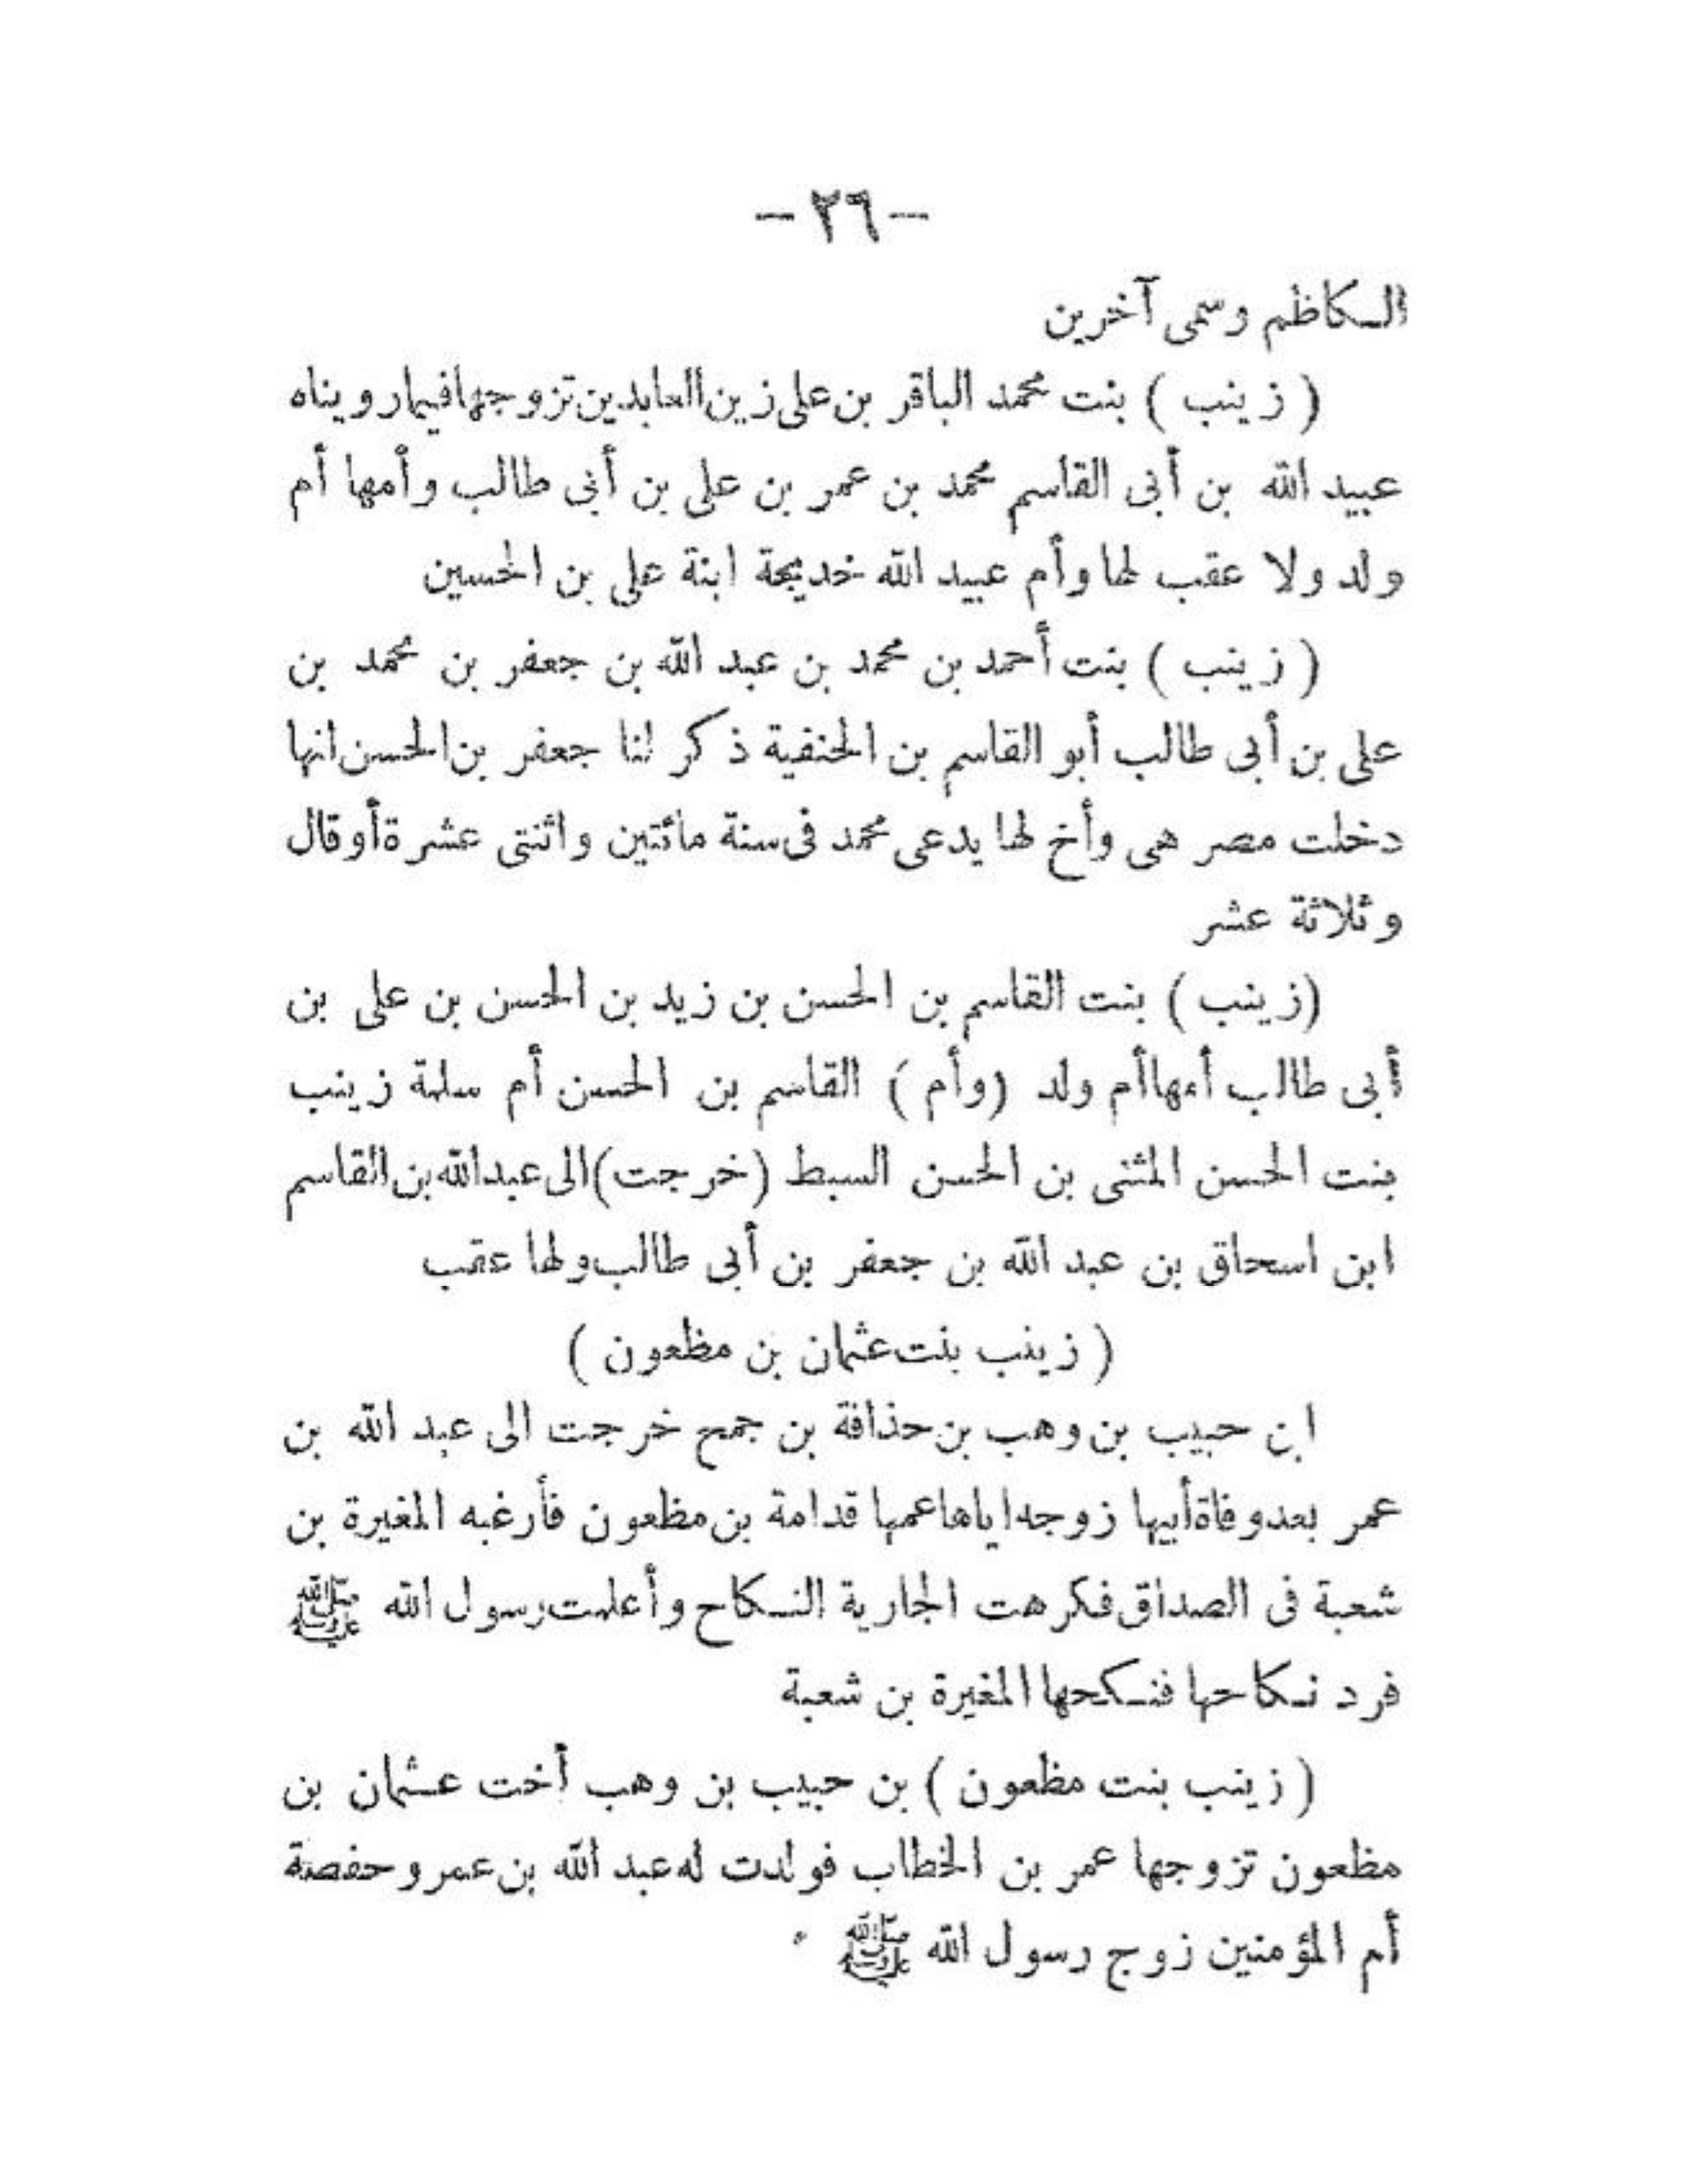 — ٢٦ —
الكاظم وسمى آخرين
( زينب ) بنت محمد الباقر بن على زين العابدين تزوجها فيما رويناه
عبيد الله بن أبى القاسم محمد بن عمر بن على بن أبى طالب وأمها أم
ولد ولا عقب لها وأم عبيد الله خديجة ابنة على بن الحسين
( زينب ) بنت أحمد بن محمد بن عبد الله بن جعفر بن محمد بن
على بن أبى طالب أبو القاسم بن الحنفية ذكر لنا جعفر بن الحسن انها
دخلت مصر هى وأخ لها يدعى محمد فى سنة مائتين واثنتى عشرة أو قال
وثلاثة عشر
(زينب ) بنت القاسم بن الحسن بن زيد بن الحسن بن على بن
أبى طالب أمها أم ولد (وأم ) القاسم بن الحسن أم سلمة زينب
بنت الحسن المثنى بن الحسن السبط (خرجت) الى عبد الله بن القاسم
ابن اسحاق بن عبد الله بن جعفر بن أبى طالب ولها عقب
( زينب بنت عثمان بن مظعون )
ابن حبيب بن وهب بن حذافة بن جمح خرجت الى عبد الله بن
عمر بعد وفاة أبيها زوجه اياها عمها قدامة بن مظعون فأرغبه المغيرة بن
شعبة فى الصداق فكرهت الجارية النكاح وأعلمت رسول الله ﷺ
فرد نكاحها فنكحها المغيرة بن شعبة
( زينب بنت مظعون ) بن حبيب بن وهب أخت عثمان بن
مظعون تزوجها عمر بن الخطاب فولدت له عبد الله بن عمر وحفصة
أم المؤمنين زوج رسول الله ﷺ .